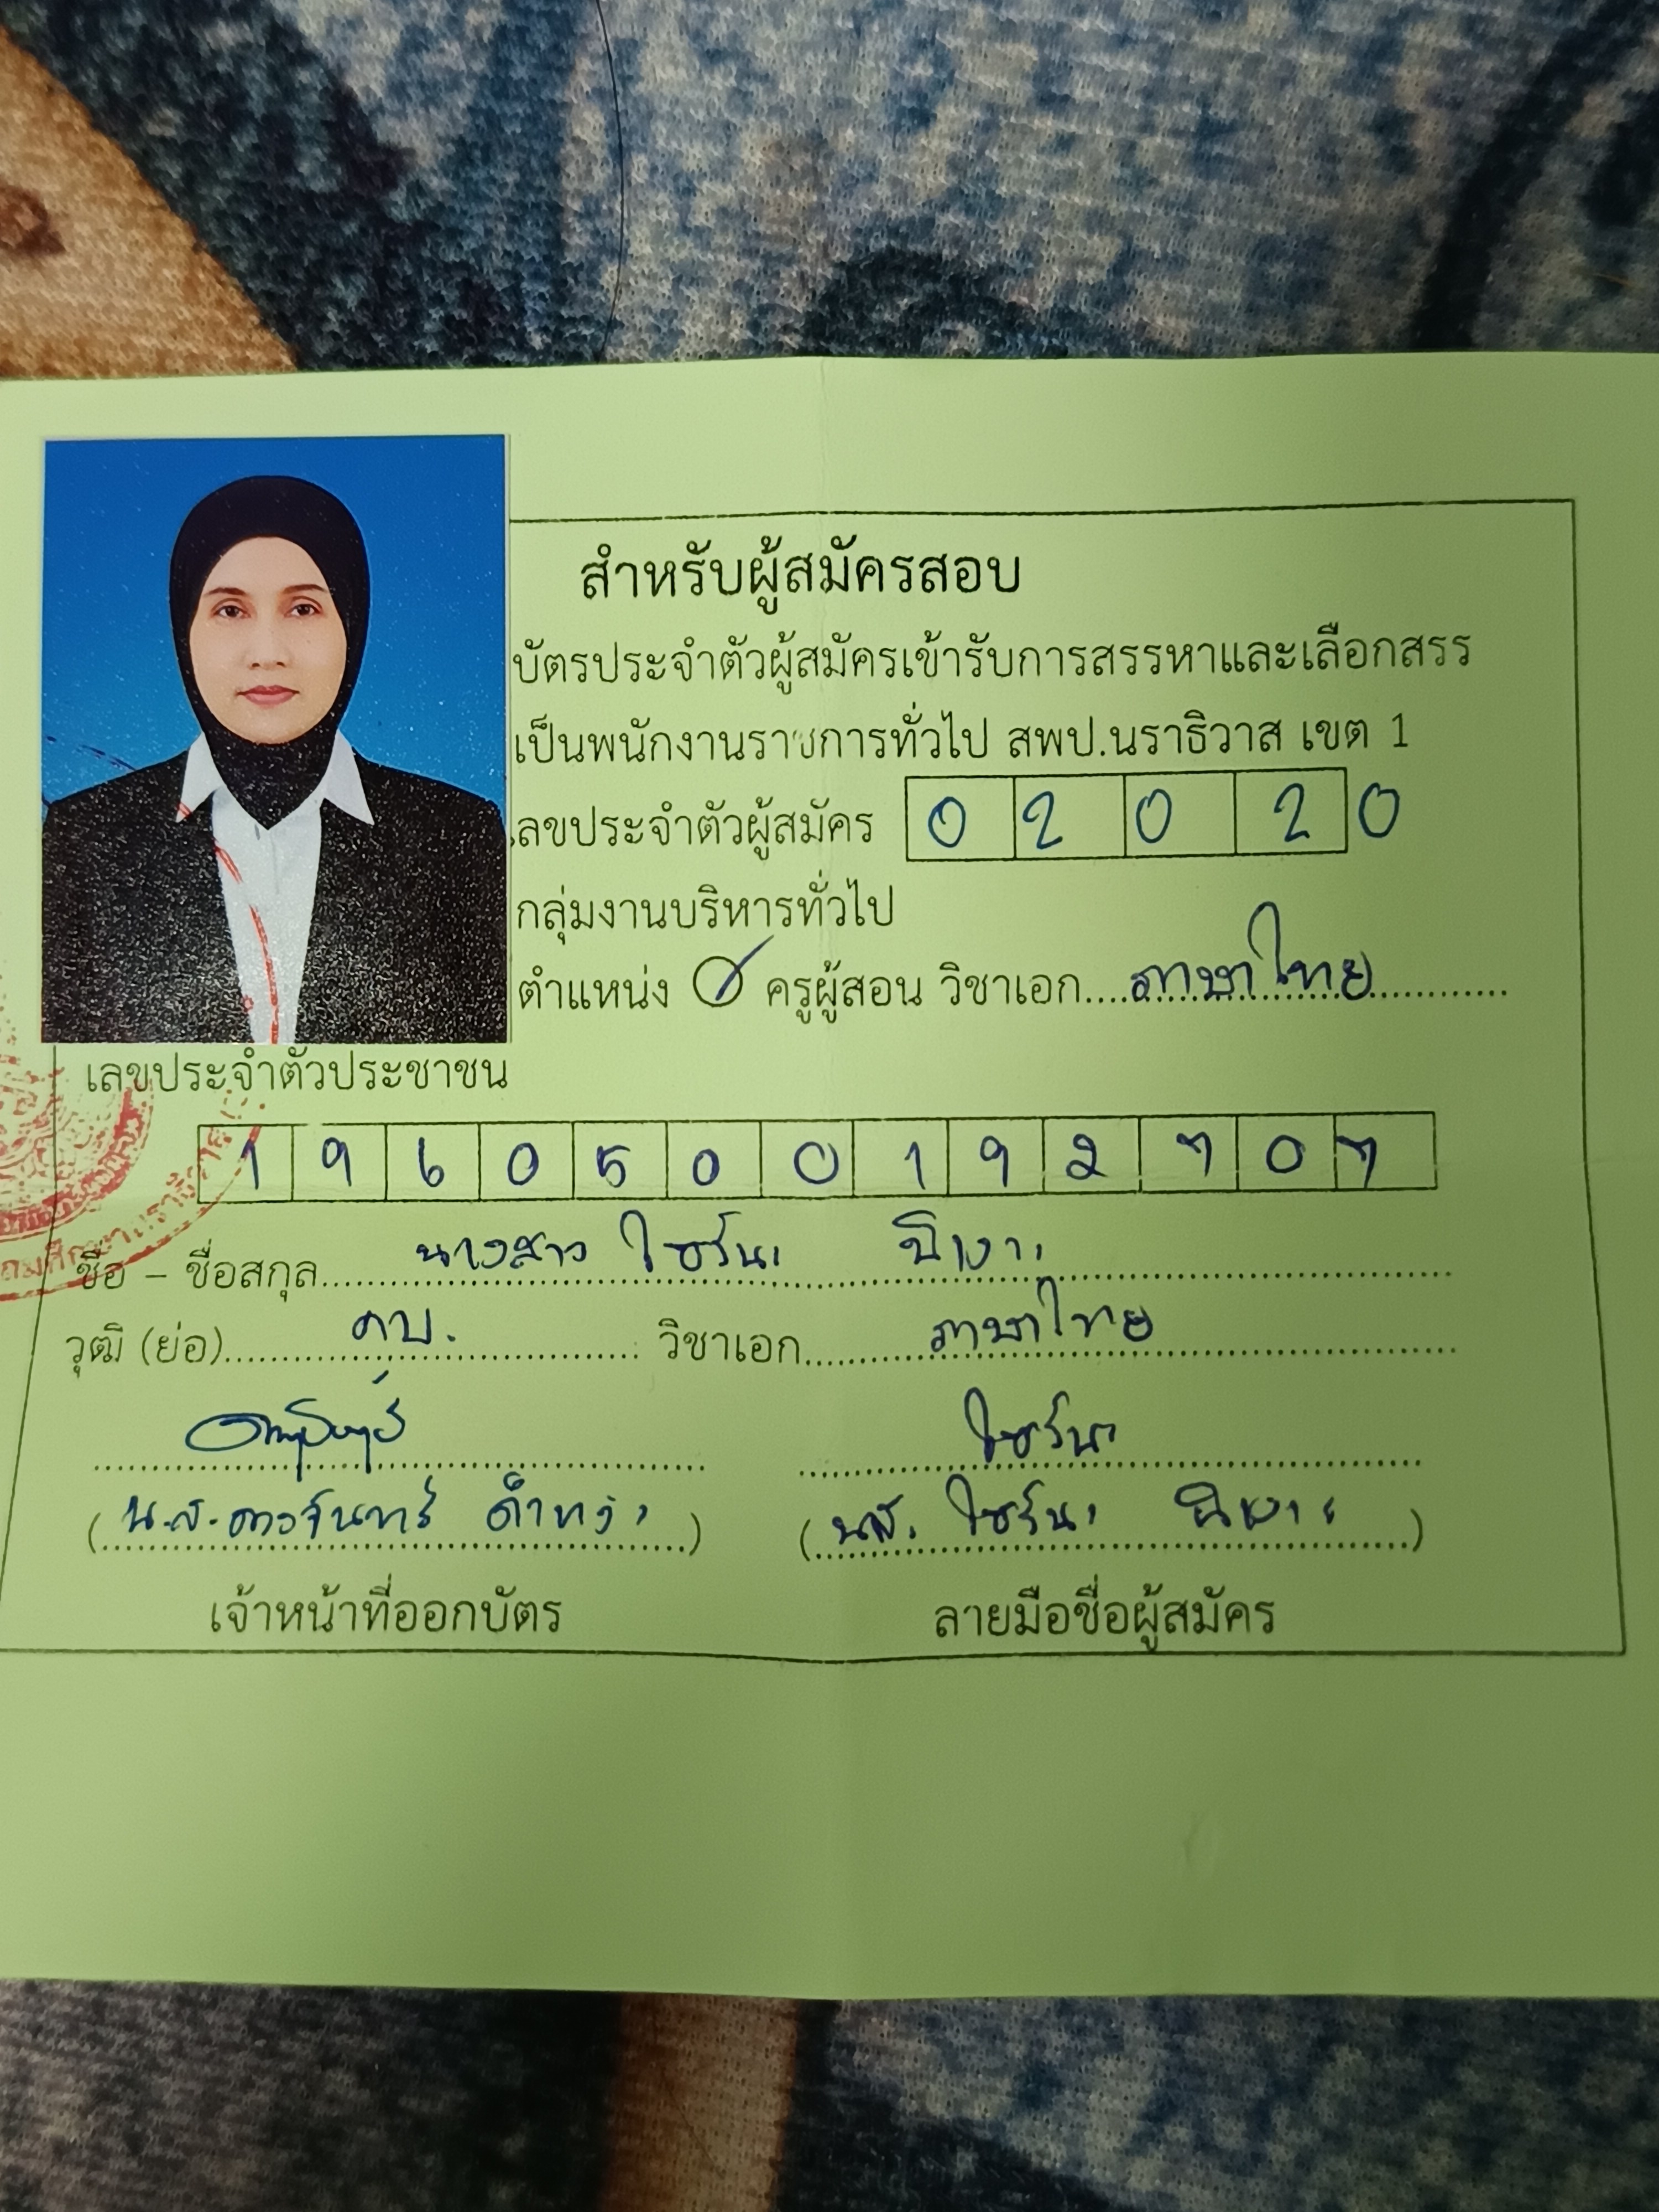 สำหรับผู้สมัครสอบ
บัตรประจำตัวผู้สมัครเข้ารับการสรรหาและเลือกสรร
เป็นพนักงานราชการทั่วไป สพป.นราธิวาส เขต 1
เลขประจำตัวผู้สมัคร 0 2 0 2 0
กลุ่มงานบริหารทั่วไป
ตำแหน่ง ครูผู้สอน วิชาเอก....ภาษาไทย....
เลขประจำตัวประชาชน
1 9 6 0 5 0 0 1 9 2 7 0 7
ชื่อ - ชื่อสกุล....นางสาว
วุฒิ (ย่อ)....คบ..... วิชาเอก....ภาษาไทย....
(น.ส.ดวงจันทร์) (นส.)
เจ้าหน้าที่ออกบัตร ลายมือชื่อผู้สมัคร